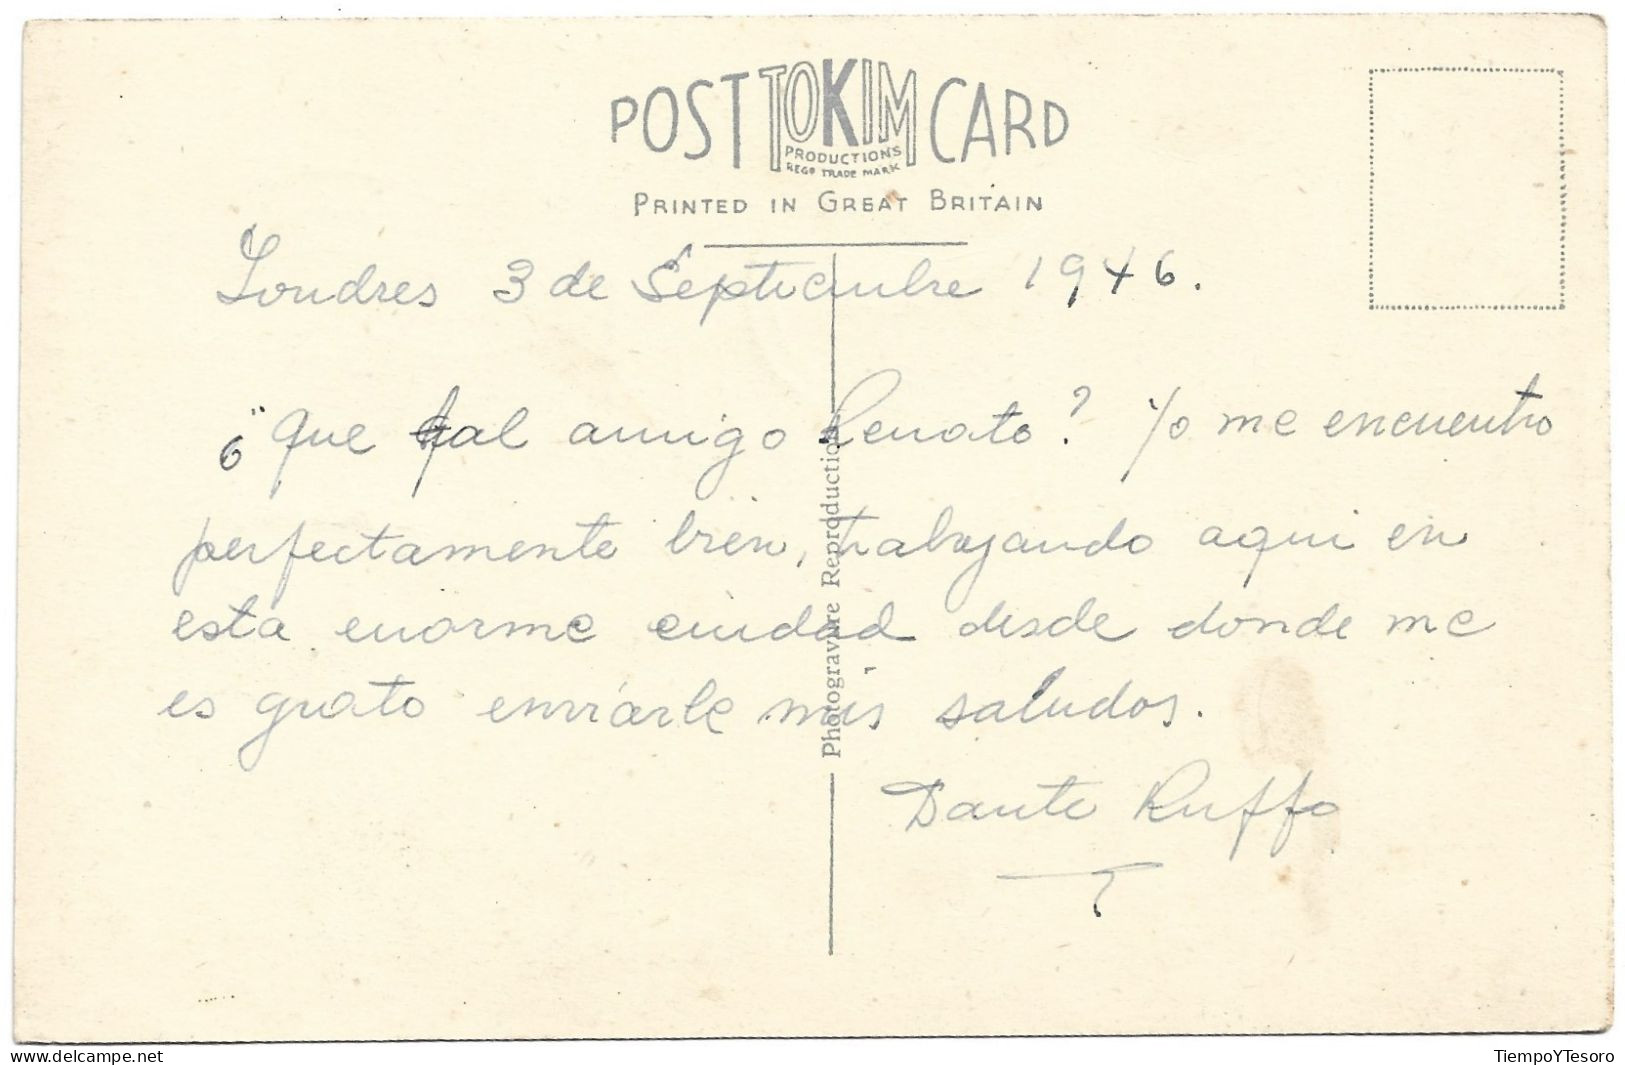 POST TOKIM CARD
PRODUCTIONS
REGD TRADE MARK
PRINTED IN GREAT BRITAIN
Londres 3 de Septiembre 1946.
¿Que tal amigo Renato? Yo me encuentro
perfectamente bien, trabajando aqui en
esta enorme ciudad desde donde me
es grato enviarle mis saludos.
Dante Ruffo
Photogravure Reproduction
www.delcampe.net
TiempoYTesoro